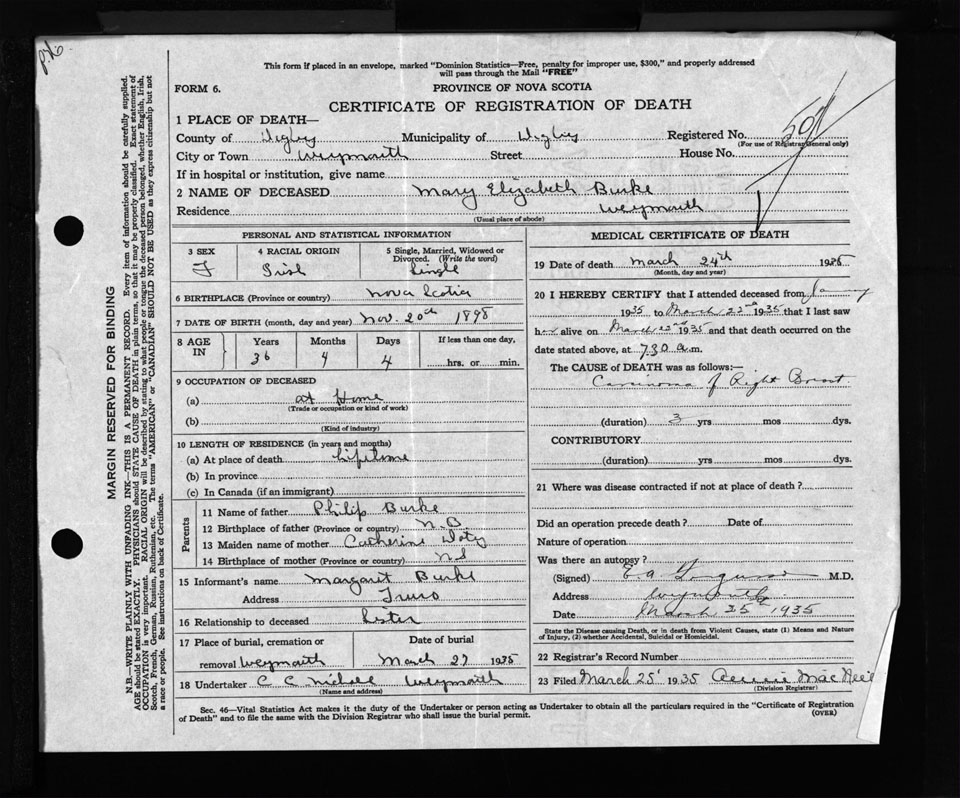 This form if placed in an envelope, marked "Dominion Statistics—Free, penalty for improper use, $300," and properly addressed
will pass through the Mail "FREE"
FORM 6. PROVINCE OF NOVA SCOTIA
CERTIFICATE OF REGISTRATION OF DEATH
1 PLACE OF DEATH—
County of Digby Municipality of Digby Registered No.
(For use of Registrar General only)
City or Town Weymouth Street House No.
If in hospital or institution, give name
2 NAME OF DECEASED Mary Elizabeth Burke
Residence Weymouth
(Usual place of abode)
PERSONAL AND STATISTICAL INFORMATION
3 SEX 4 RACIAL ORIGIN 5 Single, Married, Widowed or
Divorced. (Write the word)
F Irish Single
6 BIRTHPLACE (Province or country) Nova Scotia
7 DATE OF BIRTH (month, day and year) Nov. 20th 1898
8 AGE IN Years Months Days If less than one day,
36 4 4 hrs. or min.
9 OCCUPATION OF DECEASED
(a) at Home
(Trade or occupation or kind of work)
(b)
(Kind of industry)
10 LENGTH OF RESIDENCE (in years and months)
(a) At place of death Lifetime
(b) In province
(c) In Canada (if an immigrant)
Parents
11 Name of father Philip Burke
12 Birthplace of father (Province or country) N.B.
13 Maiden name of mother Catherine Doty
14 Birthplace of mother (Province or country) NS
15 Informant's name Margaret Burke
Address Truro
16 Relationship to deceased Sister
17 Place of burial, cremation or Date of burial
removal Weymouth March 27 1935
18 Undertaker C C Weymouth
(Name and address)
MEDICAL CERTIFICATE OF DEATH
19 Date of death March 24th 1935
(Month, day and year)
20 I HEREBY CERTIFY that I attended deceased from
1935 to March 22nd 1935 that I last saw
alive on March 22nd 1935 and that death occurred on
the date stated above, at 7.30 a.m.
The CAUSE of DEATH was as follows:—
Carcinoma of Right Breast
(duration) 3 yrs mos dys.
CONTRIBUTORY
(duration) yrs mos dys.
21 Where was disease contracted if not at place of death?
Did an operation precede death? Date of
Nature of operation
Was there an autopsy?
(Signed) M.D.
Address Weymouth
Date March 25th 1935
State the Disease causing Death, or in death from Violent Causes, state (1) Means and Nature
of Injury, (2) whether Accidental, Suicidal or Homicidal.
22 Registrar's Record Number
23 Filed March 25 1935
(Division Registrar)
Sec. 46—Vital Statistics Act makes it the duty of the Undertaker or person acting as Undertaker to obtain all the particulars required in the "Certificate of Registration
of Death" and to file the same with the Division Registrar who shall issue the burial permit.
(OVER)
MARGIN RESERVED FOR BINDING
N.B.—WRITE PLAINLY WITH UNFADING INK—THIS IS A PERMANENT RECORD. Every item of information should be carefully supplied.
AGE should be stated EXACTLY. PHYSICIANS should STATE CAUSE OF DEATH in plain terms, so that it may be properly classified. Exact statement of
OCCUPATION is very important. RACIAL ORIGIN will be described by stating to what people or tongue the deceased person belonged, whether English, Irish,
Scotch, French, German, Russian, Ruthenian, etc. The terms "AMERICAN" or "CANADIAN" SHOULD NOT BE USED as they express citizenship but not
a race or people. See instructions on back of Certificate.